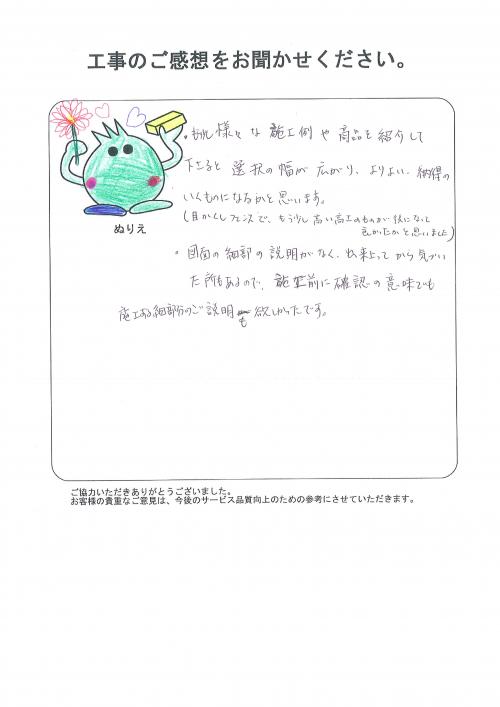 工事のご感想をお聞かせください。
・もし様々な施工例や商品を紹介して
下さると選択の幅が広がり、よりよい、納得の
いくものになるかと思います。
(目かくしフェンスで、もう少し高い高
ぬりえ
良かったかと思いました)
・図面の細部の説明がなく、出来上ってから気づい
た所もあるので、施工前に確認の意味でも
施工する細部分のご説明も欲しかったです。
ご協力いただきありがとうございました。
お客様の貴重なご意見は、今後のサービス品質向上のための参考にさせていただきます。